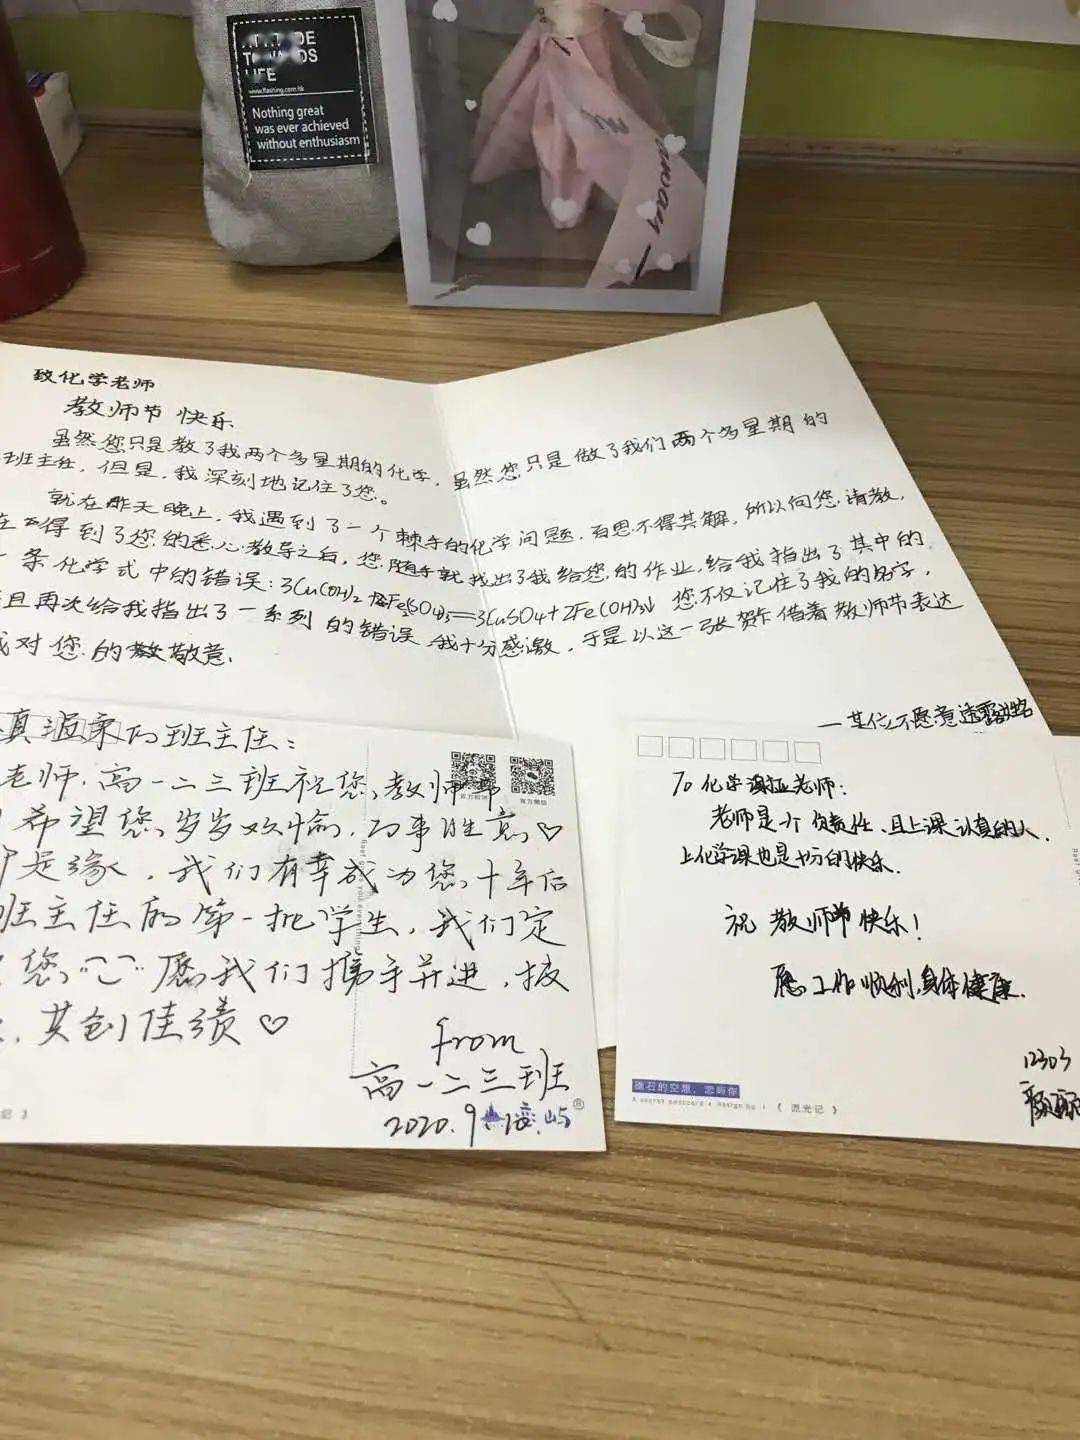 TOWARDS
LIFE
www.flashing.com.hk
Nothing great
was ever achieved
without enthusiasm
致化学老师
教师节快乐
虽然您只是教了我两个多星期的化学，虽然您只是做了我们两个多星期的
班主任，但是，我深刻地记住了您。
就在昨天晚上，我遇到了一个棘手的化学问题，百思不得其解，所以向您请教，
在得到了您的悉心教导之后，您随手就找出了我给您的作业，给我指出了其中的
一条化学式中的错误：3Cu(OH)₂+Fe₂(SO₄)₃==3CuSO₄+2Fe(OH)₃↓ 您不仅记住了我的名字，
且再次给我指出了一系列的错误，我十分感激，于是以这一张贺卡借着教师节表达
我对您的敬意。
——某位不愿意透露姓名
真温柔的班主任：
老师，高一二三班祝您，教师节
希望您岁岁欢愉，万事胜意♡
是缘，我们有幸成为您十年后
班主任的第一批学生，我们定
您 愿我们携手并进，披
，共创佳绩♡
from
高一二三班
2020.9
屿
官方微信
To 化学 老师：
老师是个负责任、且上课认真的人，
上化学课也是十分的快乐。
祝 教师节快乐！
愿 工作顺利，身体健康.
12303
A secret postcard
《 流光记 》